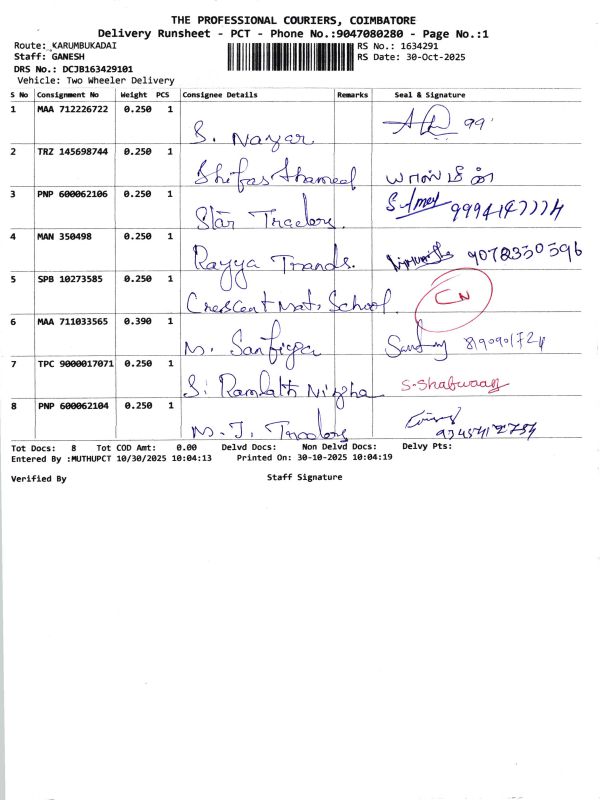 THE PROFESSIONAL COURIERS, COIMBATORE
Delivery Runsheet - PCT - Phone No.:9047080280 - Page No.:1
Route: KARUMBUKADAI RS No.: 1634291
Staff: GANESH RS Date: 30-Oct-2025
DRS No.: DCJB163429101
Vehicle: Two Wheeler Delivery
S No Consignment No Weight PCS Consignee Details Remarks Seal & Signature
1 MAA 712226722 0.250 1 S. Nayar 99
2 TRZ 145698744 0.250 1 யாஸ்மீன்
3 PNP 600062106 0.250 1 Star Traders.
4 MAN 350498 0.250 1 Rayya Trands. 9078350596
5 SPB 10273585 0.250 1 Crescent Mat. School. CN
6 MAA 711033565 0.390 1 M.
7 TPC 9000017071 0.250 1 S. Ramlath Nizha
8 PNP 600062104 0.250 1 M. J. Traders
Tot Docs: 8 Tot COD Amt: 0.00 Delvd Docs: Non Delvd Docs: Delvy Pts:
Entered By :MUTHUPCT 10/30/2025 10:04:13 Printed On: 30-10-2025 10:04:19
Verified By Staff Signature